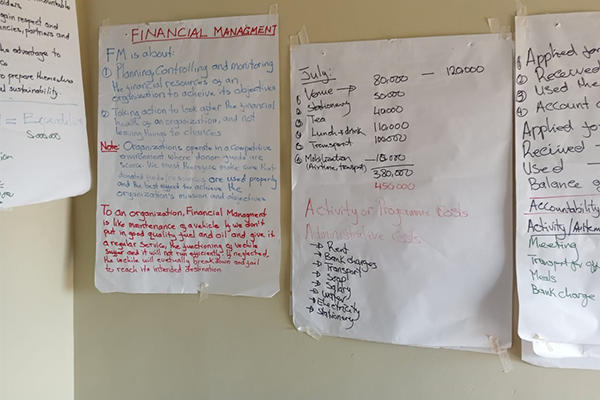 accountable
olders
again respect and
ncies, partners and
the advantage to
ce
o prepare themselves
l sustainability.
= Expenditure
5000.000
FINANCIAL MANAGMENT
FM is about:
① Planning, Controlling and monitoring
the financial resources of an
organization to acheive its objectives
② Taking action to look after the financial
health of an organization, and not
leaving things to chances
Note: Organizations operate in a competitive
environment where donor funds are
scarce. We must therefore make sure that
donated funds/resources are used properly
and the best against to achieve the
organization's mission and objectives
To an organization, Financial Managment
is like maintenance of a vehicle if we don't
put in good quality fuel and oil and give it
a regular service, the functioning of vehicle
and it will not run efficiently. If neglected,
the vehicle will eventually breakdown and fail
to reach its intended destination
July:
① Venue → 80,000 — 120,000
② Stationery 50,000
③ Tea 40,000
④ Lunch + drink 110,000
⑤ Transport 100,000
⑥ Mobilization
(Airtime, transport)
380,000
450,000
Activity or Programme Costs
Administrative Costs
→ Rent
→ Bank charges
→ Transport
→ Soap
→ Salary
→ Water
→ Electricity
→ Stationery
① Applied for
② Received
③ Used the
④ Account
Applied for
Received
Used
Balance
Accountability
Activity/
Meeting
Transport for
Meals
Bank charge